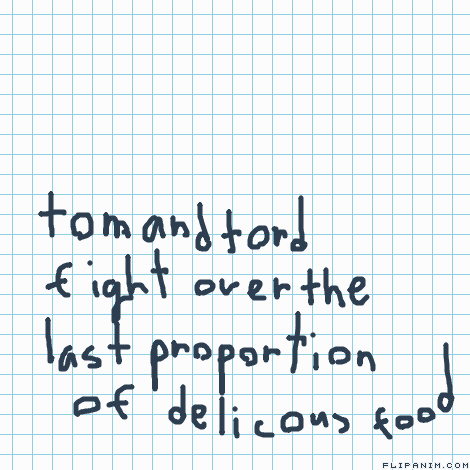 tom and tord
fight over the
last proportion
of delicous food
FLIPANIM.COM